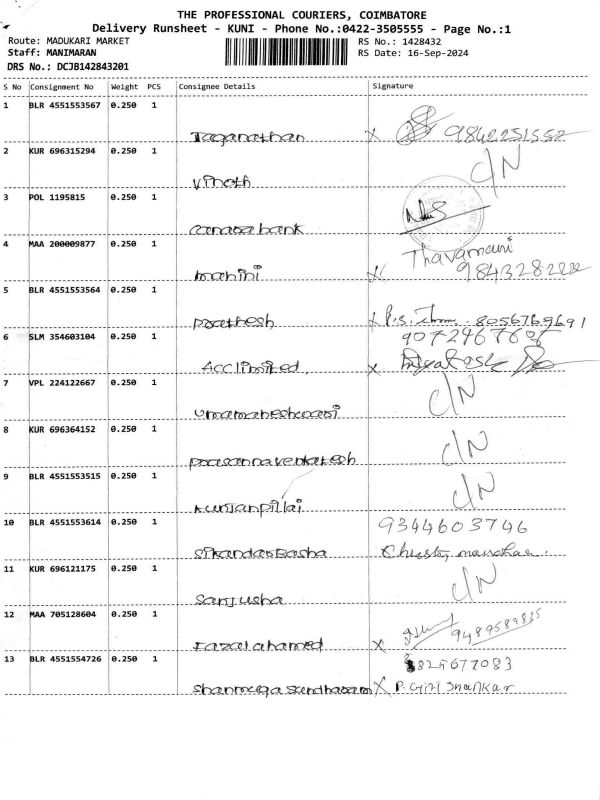 THE PROFESSIONAL COURIERS, COIMBATORE
Delivery Runsheet - KUNI - Phone No.:0422-3505555 - Page No.:1
Route: MADUKARI MARKET RS No.: 1428432
Staff: MANIMARAN RS Date: 16-Sep-2024
DRS No.: DCJB142843201
S No Consignment No Weight PCS Consignee Details Signature
1 BLR 4551553567 0.250 1
Jaganathan X 9842251552
2 KUR 696315294 0.250 1 C/N
Vinoth
3 POL 1195815 0.250 1
canara bank
4 MAA 200009877 0.250 1 Thavamani
mahini X
5 BLR 4551553564 0.250 1
prathesh P.S. 8056769691
6 SLM 354603104 0.250 1 9072967605
Acc limited X
7 VPL 224122667 0.250 1 C/N
umamaheshwari
8 KUR 696364152 0.250 1 C/N
prasanna venkatesh
9 BLR 4551553515 0.250 1 C/N
kunjanpillai
10 BLR 4551553614 0.250 1 9344603746
Sikandar Basha
11 KUR 696121175 0.250 1 C/N
Sanjusha
12 MAA 705128604 0.250 1 9487589835
Fazal ahamed X
13 BLR 4551554726 0.250 1 8825677083
Shanmuga Sundharam X P. Giri Shankar